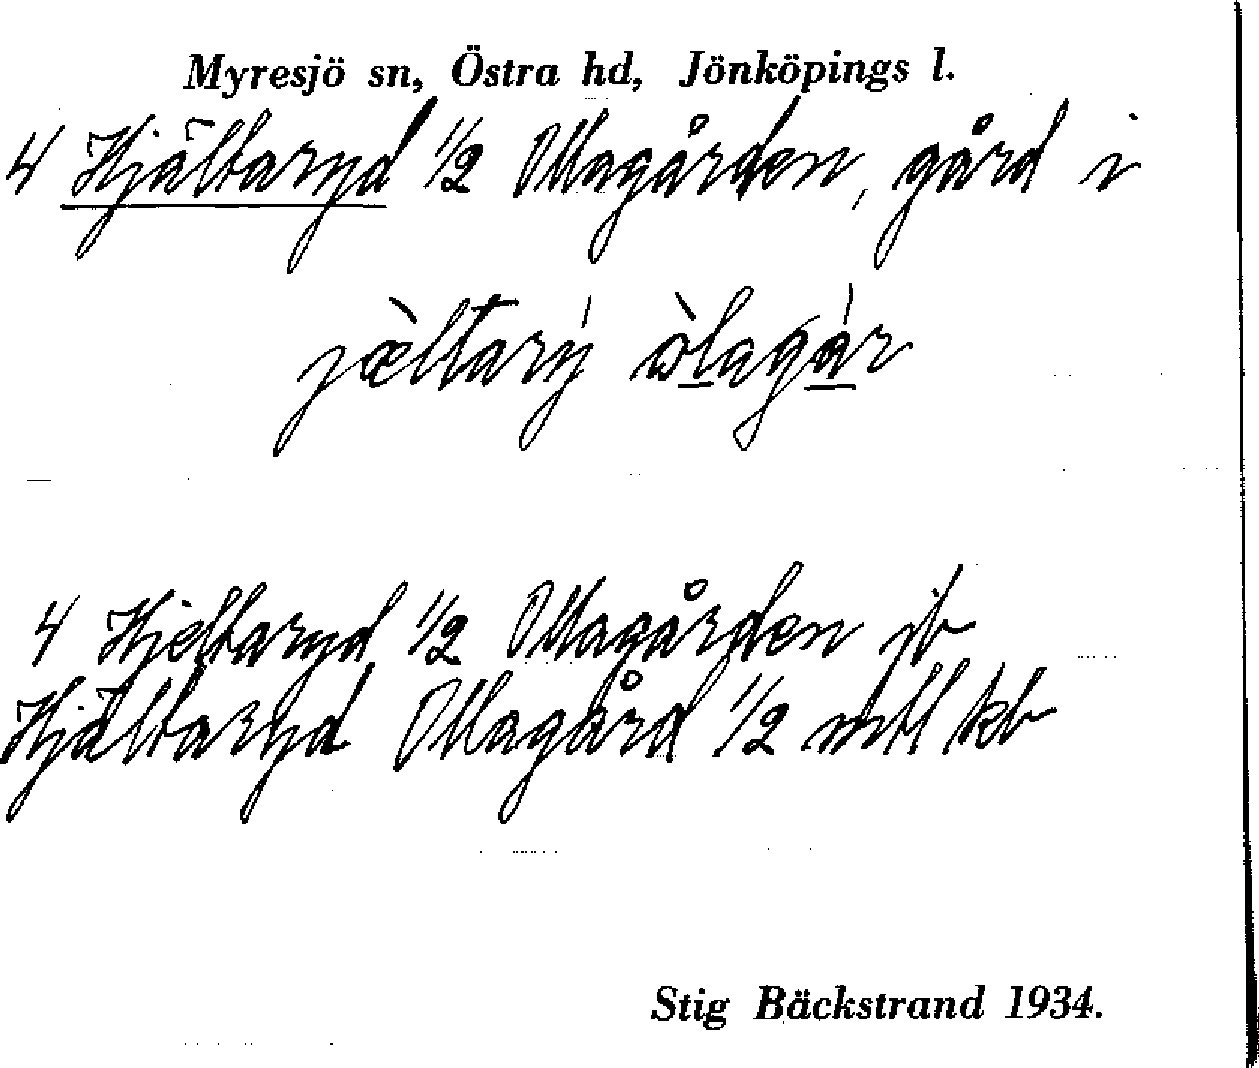 Myresjö sn, Östra hd, Jönköpings l.
4 Hjältaryd 1/2 Olagården, gård i
jæ̀ltarý òlagár
4 Hjeltaryd 1/2 Olagården jb
Hjältaryd Olagård 1/2 mtl kb
Stig Bäckstrand 1934.